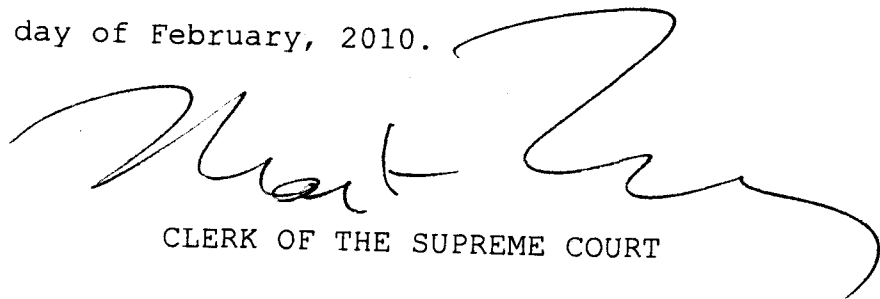 day of February, 2010.
CLERK OF THE SUPREME COURT